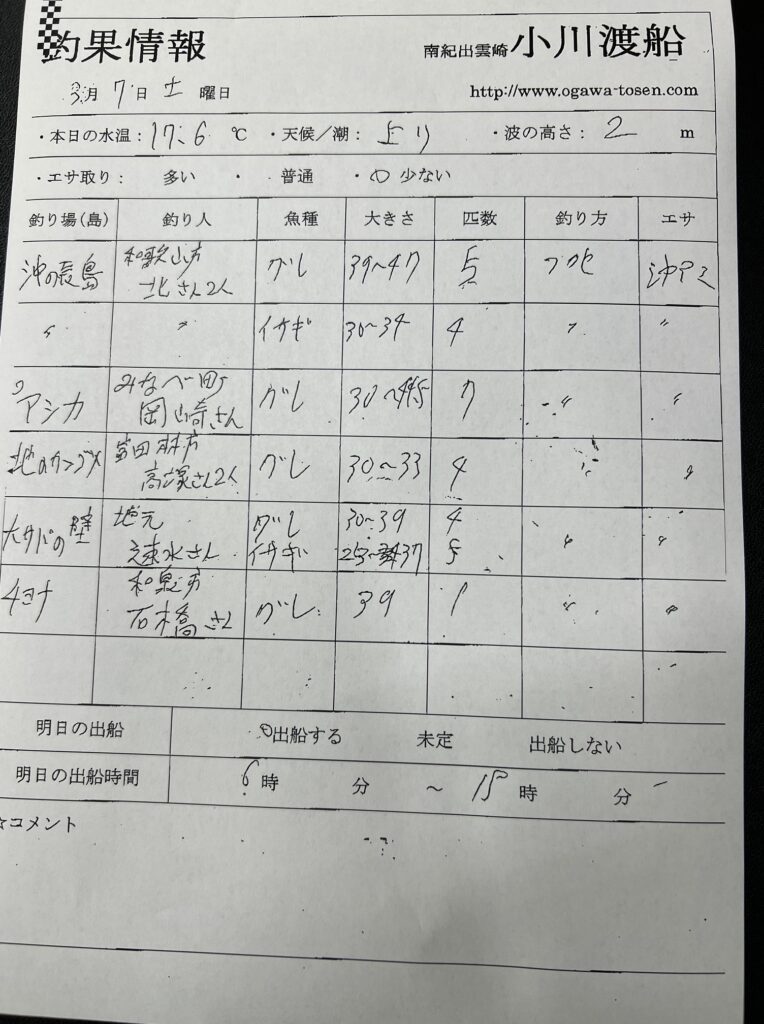 釣果情報
南紀出雲崎 小川渡船
3月7日土曜日
http://www.ogawa-tosen.com
・本日の水温：17.6℃ ・天候／潮：上り ・波の高さ：2m
・エサ取り： 多い ・ 普通 ・ 少ない
釣り場(島) 釣り人 魚種 大きさ 匹数 釣り方 エサ
沖の長島 和歌山市 北さん2人 グレ 39〜47 5 フカセ 沖アミ
〃 〃 イサギ 30〜34 4 〃 〃
アシカ みなべ町 岡崎さん グレ 7 〃 〃
富田林市 高塚さん2人 グレ 30〜33 4 〃 〃
大サバの壁 地元 速水さん グレ 30〜39 4 〃 〃
イサギ 5
和泉市 石橋さん グレ 39 1 〃 〃
明日の出船 出船する 未定 出船しない
明日の出船時間 6時 分 〜 15時 分
☆コメント